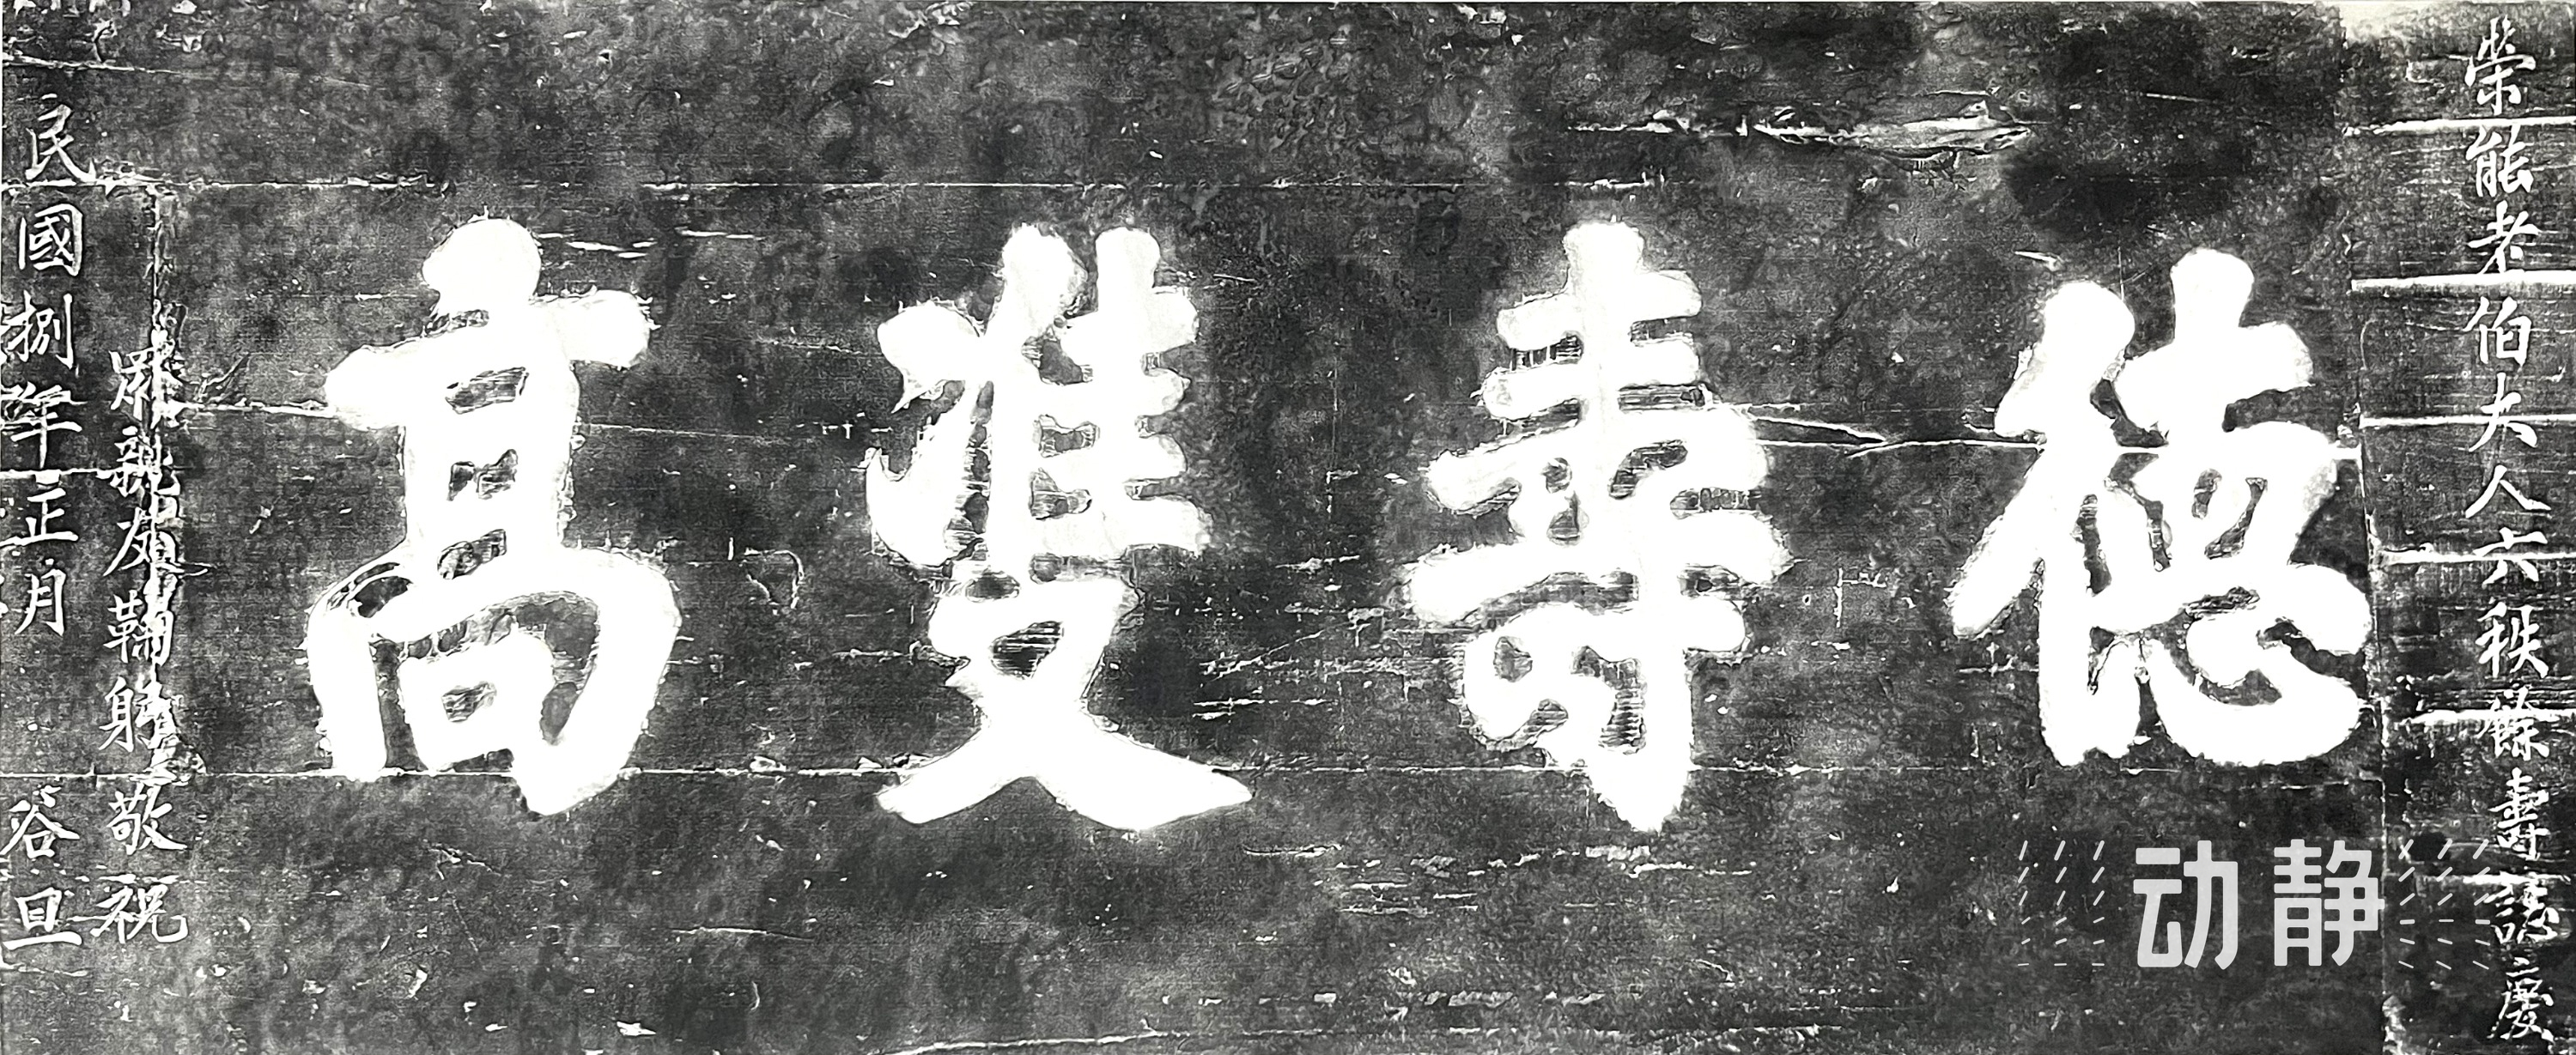 榮能老伯大人六秩餘壽誌慶
德壽雙高
眾親友鞠躬敬祝
民國捌年正月 谷旦
动静